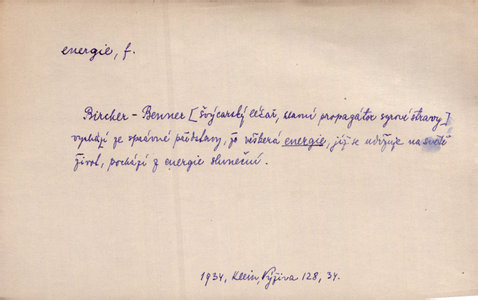 energie, f.
Bircher-Benner [švýcarský lékař, slavný propagátor syrové stravy]
vychází ze správné představy, že veškerá energie, jíž se udržuje na světě
život, pochází z energie sluneční.
1934, Klein, Výživa 128, 34.